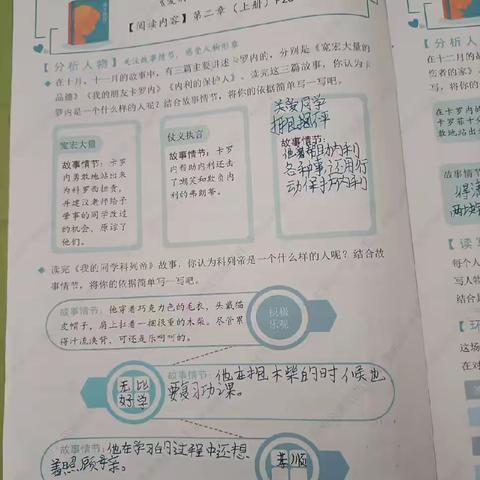 【阅读内容】第二章（上册）P28
【分析人物】关注故事情节，感受人物形象
在十月、十一月的故事中，有三篇主要讲述卡罗内的，分别是《宽宏大量的
品德》《我的朋友卡罗内》《内利的保护人》。读完这三篇故事，你认为卡
罗内是一个什么样的人呢？结合故事情节，将你的依据简单写一写吧。
宽宏大量
故事情节：卡罗
内勇敢地站出来
为科罗西担责，
并建议老师给予
肇事的同学改过
的机会，原谅了
他们。
仗义执言
故事情节：卡罗
内帮助内利还击
了嘲笑和欺负内
利的弗朗蒂。
关爱同学
故事情节：
他着
助内利
各种事，还用行
动保护内利
读完《我的同学科列帝》故事，你认为科列帝是一个什么样的人呢？结合故
事情节，将你的依据简单写一写吧。
故事情节：他穿着巧克力色的毛衣，头戴猫
皮帽子，肩上扛着一捆很重的木柴。尽管累
得汗流浃背，可还是乐呵呵的。
积极
乐观
无比
好学
故事情节：他在担木柴的时候也
要复习功课。
故事情节：他在学习的过程中还想
着照顾母亲。
孝顺
【分析人
在十二月的故
伤者的家》
写，将你的
在卡罗内
卡罗菲十
敢地站出
故事情节
【读写
每个人
写，将
结合
【环
这场
在对